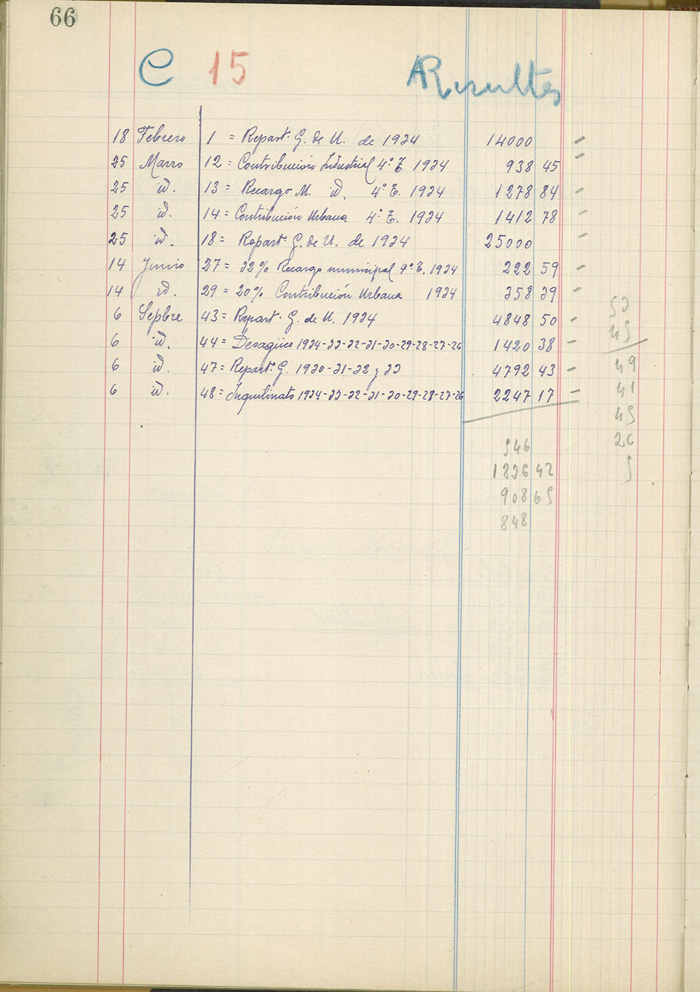 66
C 15 Resultes
18 Febrero 1 = Repart. G. de U. de 1934 14000 -
25 Marzo 12 = Contribución Industrial 4º T. 1934 938 45 -
25 id. 13 = Recargo M. id. 4º T. 1934 1278 84 -
25 id. 14 = Contribución Urbana 4º T. 1934 1412 78 -
25 id. 18 = Repart G. de U. de 1934 25000 -
14 Junio 27 = 32% Recargo municipal 4º T. 1934 222 59 -
14 id. 29 = 20% Contribución Urbana 1934 358 39 -
6 Sepbre 43 = Repart. G. de U. 1934 4848 50 -
6 id. 44 = Desagües 1934-33-32-31-30-29-28-27-26 1420 38 -
6 id. 47 = Repart. G. 1930-31-32 y 33 4792 43 -
6 id. 48 = Inquilinato 1934-33-32-31-30-29-28-27-26 2247 17 -
53
45
49
41
45
26
5
546
1226 42
908 65
848